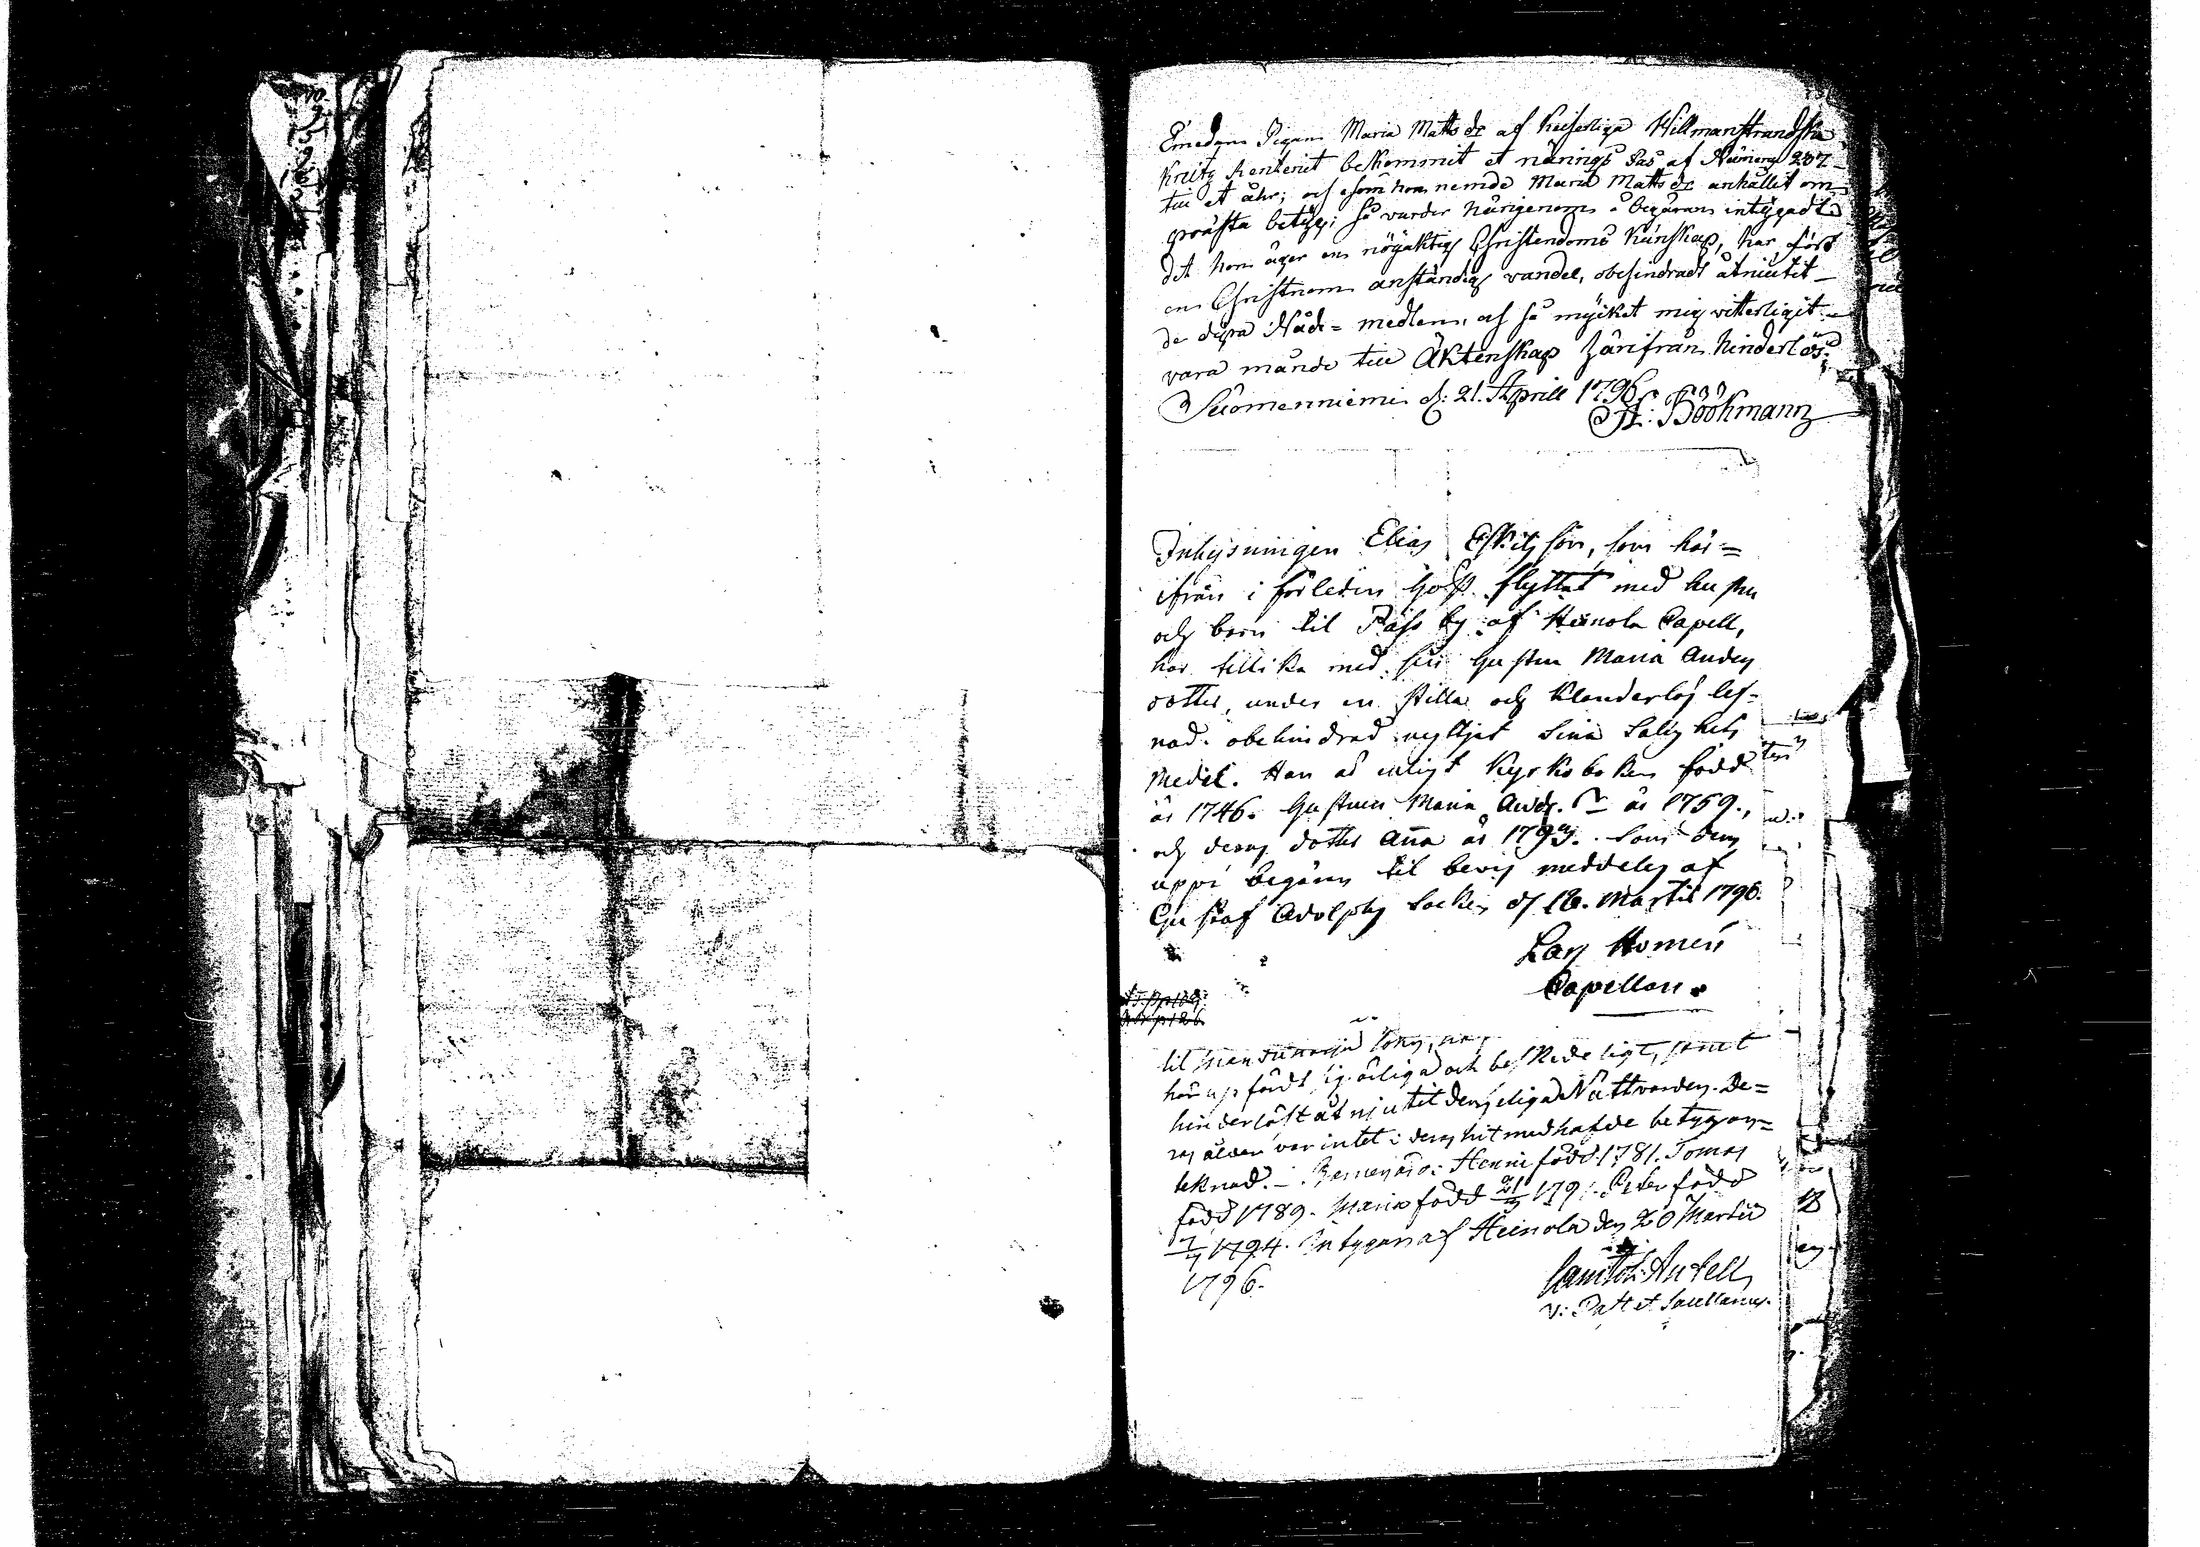 Emedan Pigan Maria Matts dr af Keiserliga Willmanstrandska
Kreits Renteriet bekommit et närings Pas af Numero 237
till et åhr; och som hon nemde Maria Matts dr anhållit om
prästa betyg; så varder härigenom å begäran intygadt
det hon äger en nöjaktig Christendoms kunskap, har fört
en Christnom anständig vandel, obehindradt åtniutit
de dyra Nåde-medlen, och så myiket mig vitterligit
vara månde till Äktenskap härifrån hinderlös.
Suomenniemi d: 21. Aprill 1796.
Böökmann
Inhysningen Elias Eskils son, som här=
ifrån i förleden höst flyttat med hustru
och barn til Paso by af Heinola Capell,
har tillika med sin hustru Maria Anders
dotter, under en stilla och klanderlös lef-
nad obehindrad nyttjat sina Salighets
Medel. Han är enligt Kyrkoboken född
år 1746. Hustrun Maria Anders dr år 1759.,
och deras dotter Anna år 179. Som dem
uppå begäran til bevis meddeles af
Gustaf Adolphs Socken d 16. Martii 1796.
Lars Homén
Capellan.
til
har upfördt sig ärliga och beskedeligt, samt
hinderlöst åtnjutit den heliga Nattvarden. De=
ras ålder var intet i deras hitmedhafde betyg an=
teknad. Barnen äro: Henric född 1781. Tomas
född 1789. Maria född 21 1791. Peter född
1794. Intygar af Heinola den 20 Martii
1796.
Antell
v: Past et Sacellanus.